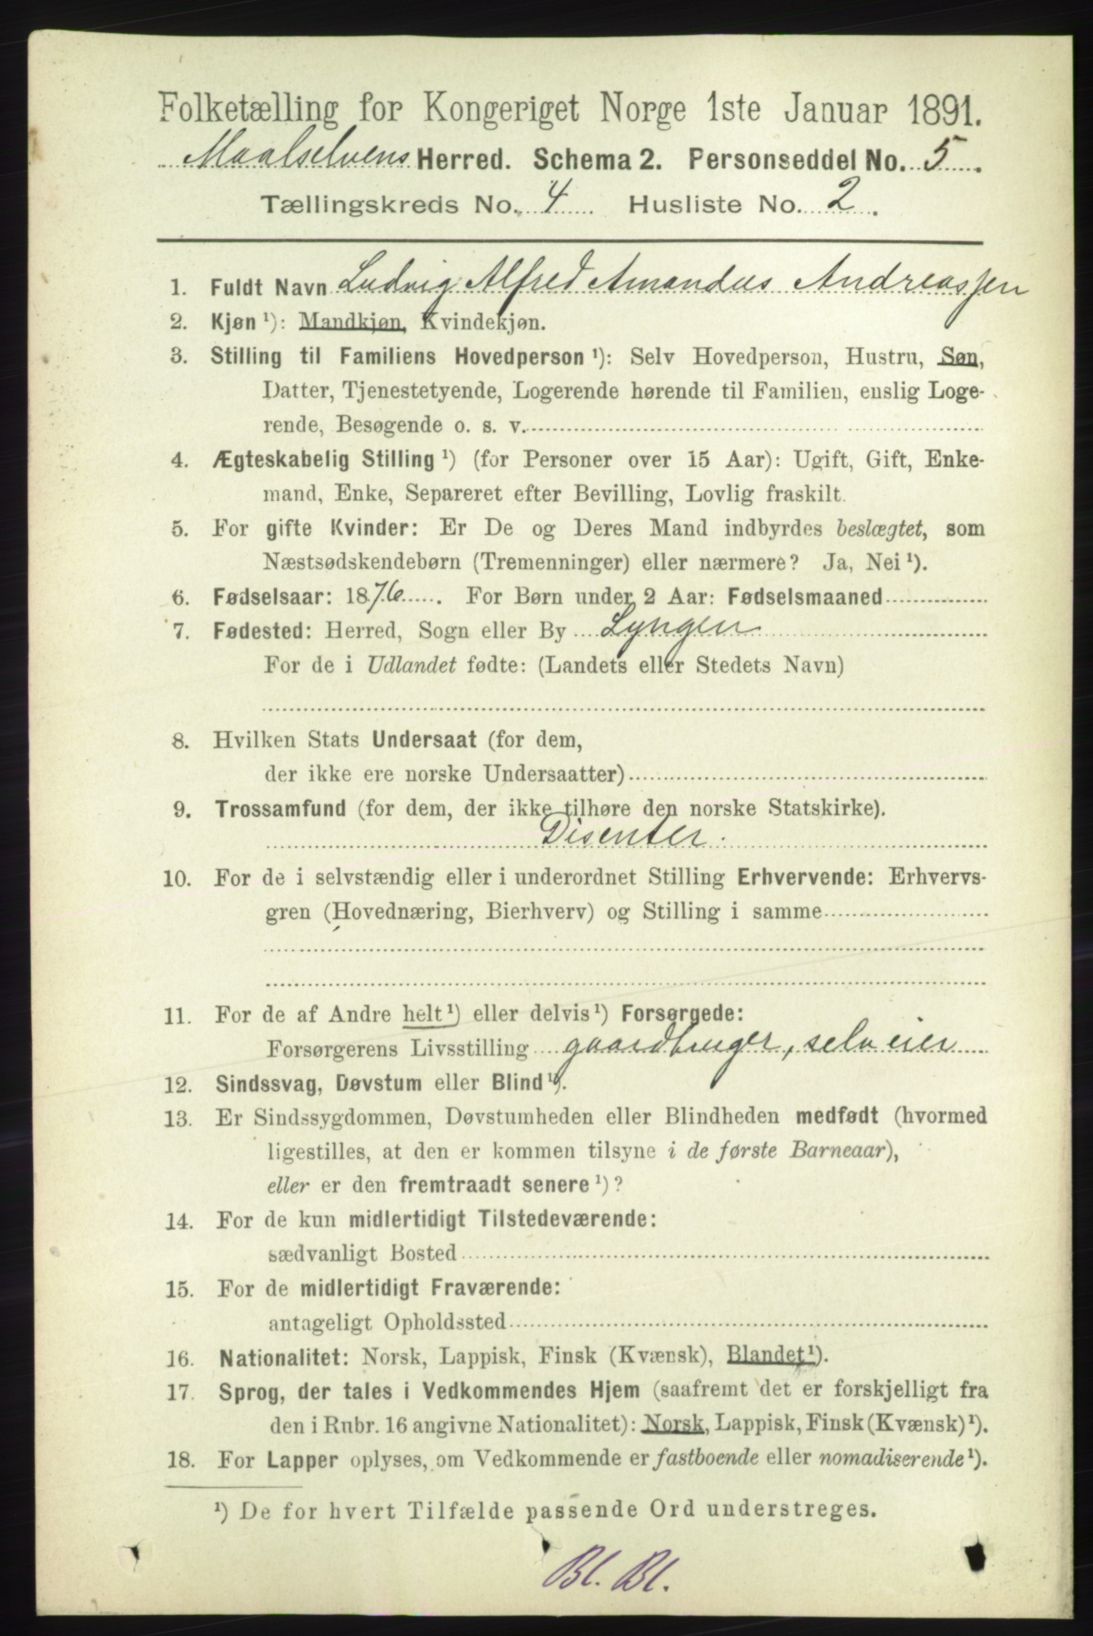 Folketælling for Kongeriget Norge 1ste Januar 1891.
Maalselvens Herred. Schema 2. Personseddel No. 5.
Tællingskreds No. 4 Husliste No. 2.
1. Fuldt Navn Ludvig Alfred Amandus Andreassen
2. Kjøn ¹): Mandkjøn, Kvindekjøn.
3. Stilling til Familiens Hovedperson ¹): Selv Hovedperson, Hustru, Søn,
Datter, Tjenestetyende, Logerende hørende til Familien, enslig Loge-
rende, Besøgende o. s. v.
4. Ægteskabelig Stilling ¹) (for Personer over 15 Aar): Ugift, Gift, Enke-
mand, Enke, Separeret efter Bevilling, Lovlig fraskilt.
5. For gifte Kvinder: Er De og Deres Mand indbyrdes beslægtet, som
Næstsødskendebørn (Tremenninger) eller nærmere? Ja, Nei ¹).
6. Fødselsaar: 1876. For Børn under 2 Aar: Fødselsmaaned
7. Fødested: Herred, Sogn eller By Lyngen
For de i Udlandet fødte: (Landets eller Stedets Navn)
8. Hvilken Stats Undersaat (for dem,
der ikke ere norske Undersaatter)
9. Trossamfund (for dem, der ikke tilhøre den norske Statskirke).
Disenter.
10. For de i selvstændig eller i underordnet Stilling Erhvervende: Erhvervs-
gren (Hovednæring, Bierhverv) og Stilling i samme
11. For de af Andre helt ¹) eller delvis ¹) Forsørgede:
Forsørgerens Livsstilling gaardbruger, selveier
12. Sindssvag, Døvstum eller Blind ¹).
13. Er Sindssygdommen, Døvstumheden eller Blindheden medfødt (hvormed
ligestilles, at den er kommen tilsyne i de første Barneaar),
eller er den fremtraadt senere ¹)?
14. For de kun midlertidigt Tilstedeværende:
sædvanligt Bosted
15. For de midlertidigt Fraværende:
antageligt Opholdssted
16. Nationalitet: Norsk, Lappisk, Finsk (Kvænsk), Blandet ¹).
17. Sprog, der tales i Vedkommendes Hjem (saafremt det er forskjelligt fra
den i Rubr. 16 angivne Nationalitet): Norsk, Lappisk, Finsk (Kvænsk) ¹).
18. For Lapper oplyses, om Vedkommende er fastboende eller nomadiserende ¹).
¹) De for hvert Tilfælde passende Ord understreges.
Bl. Bl.